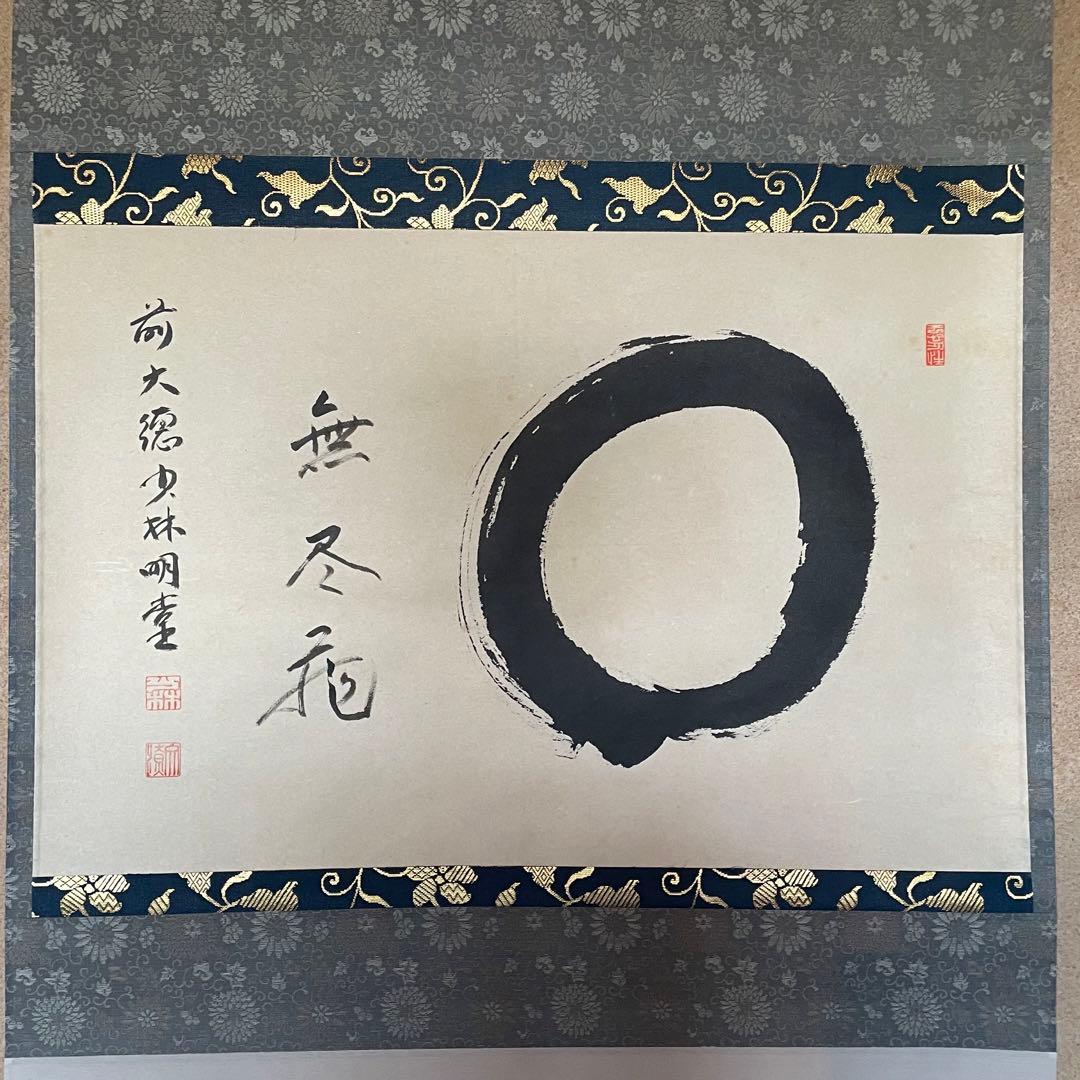 無尽蔵
前大徳少林明堂